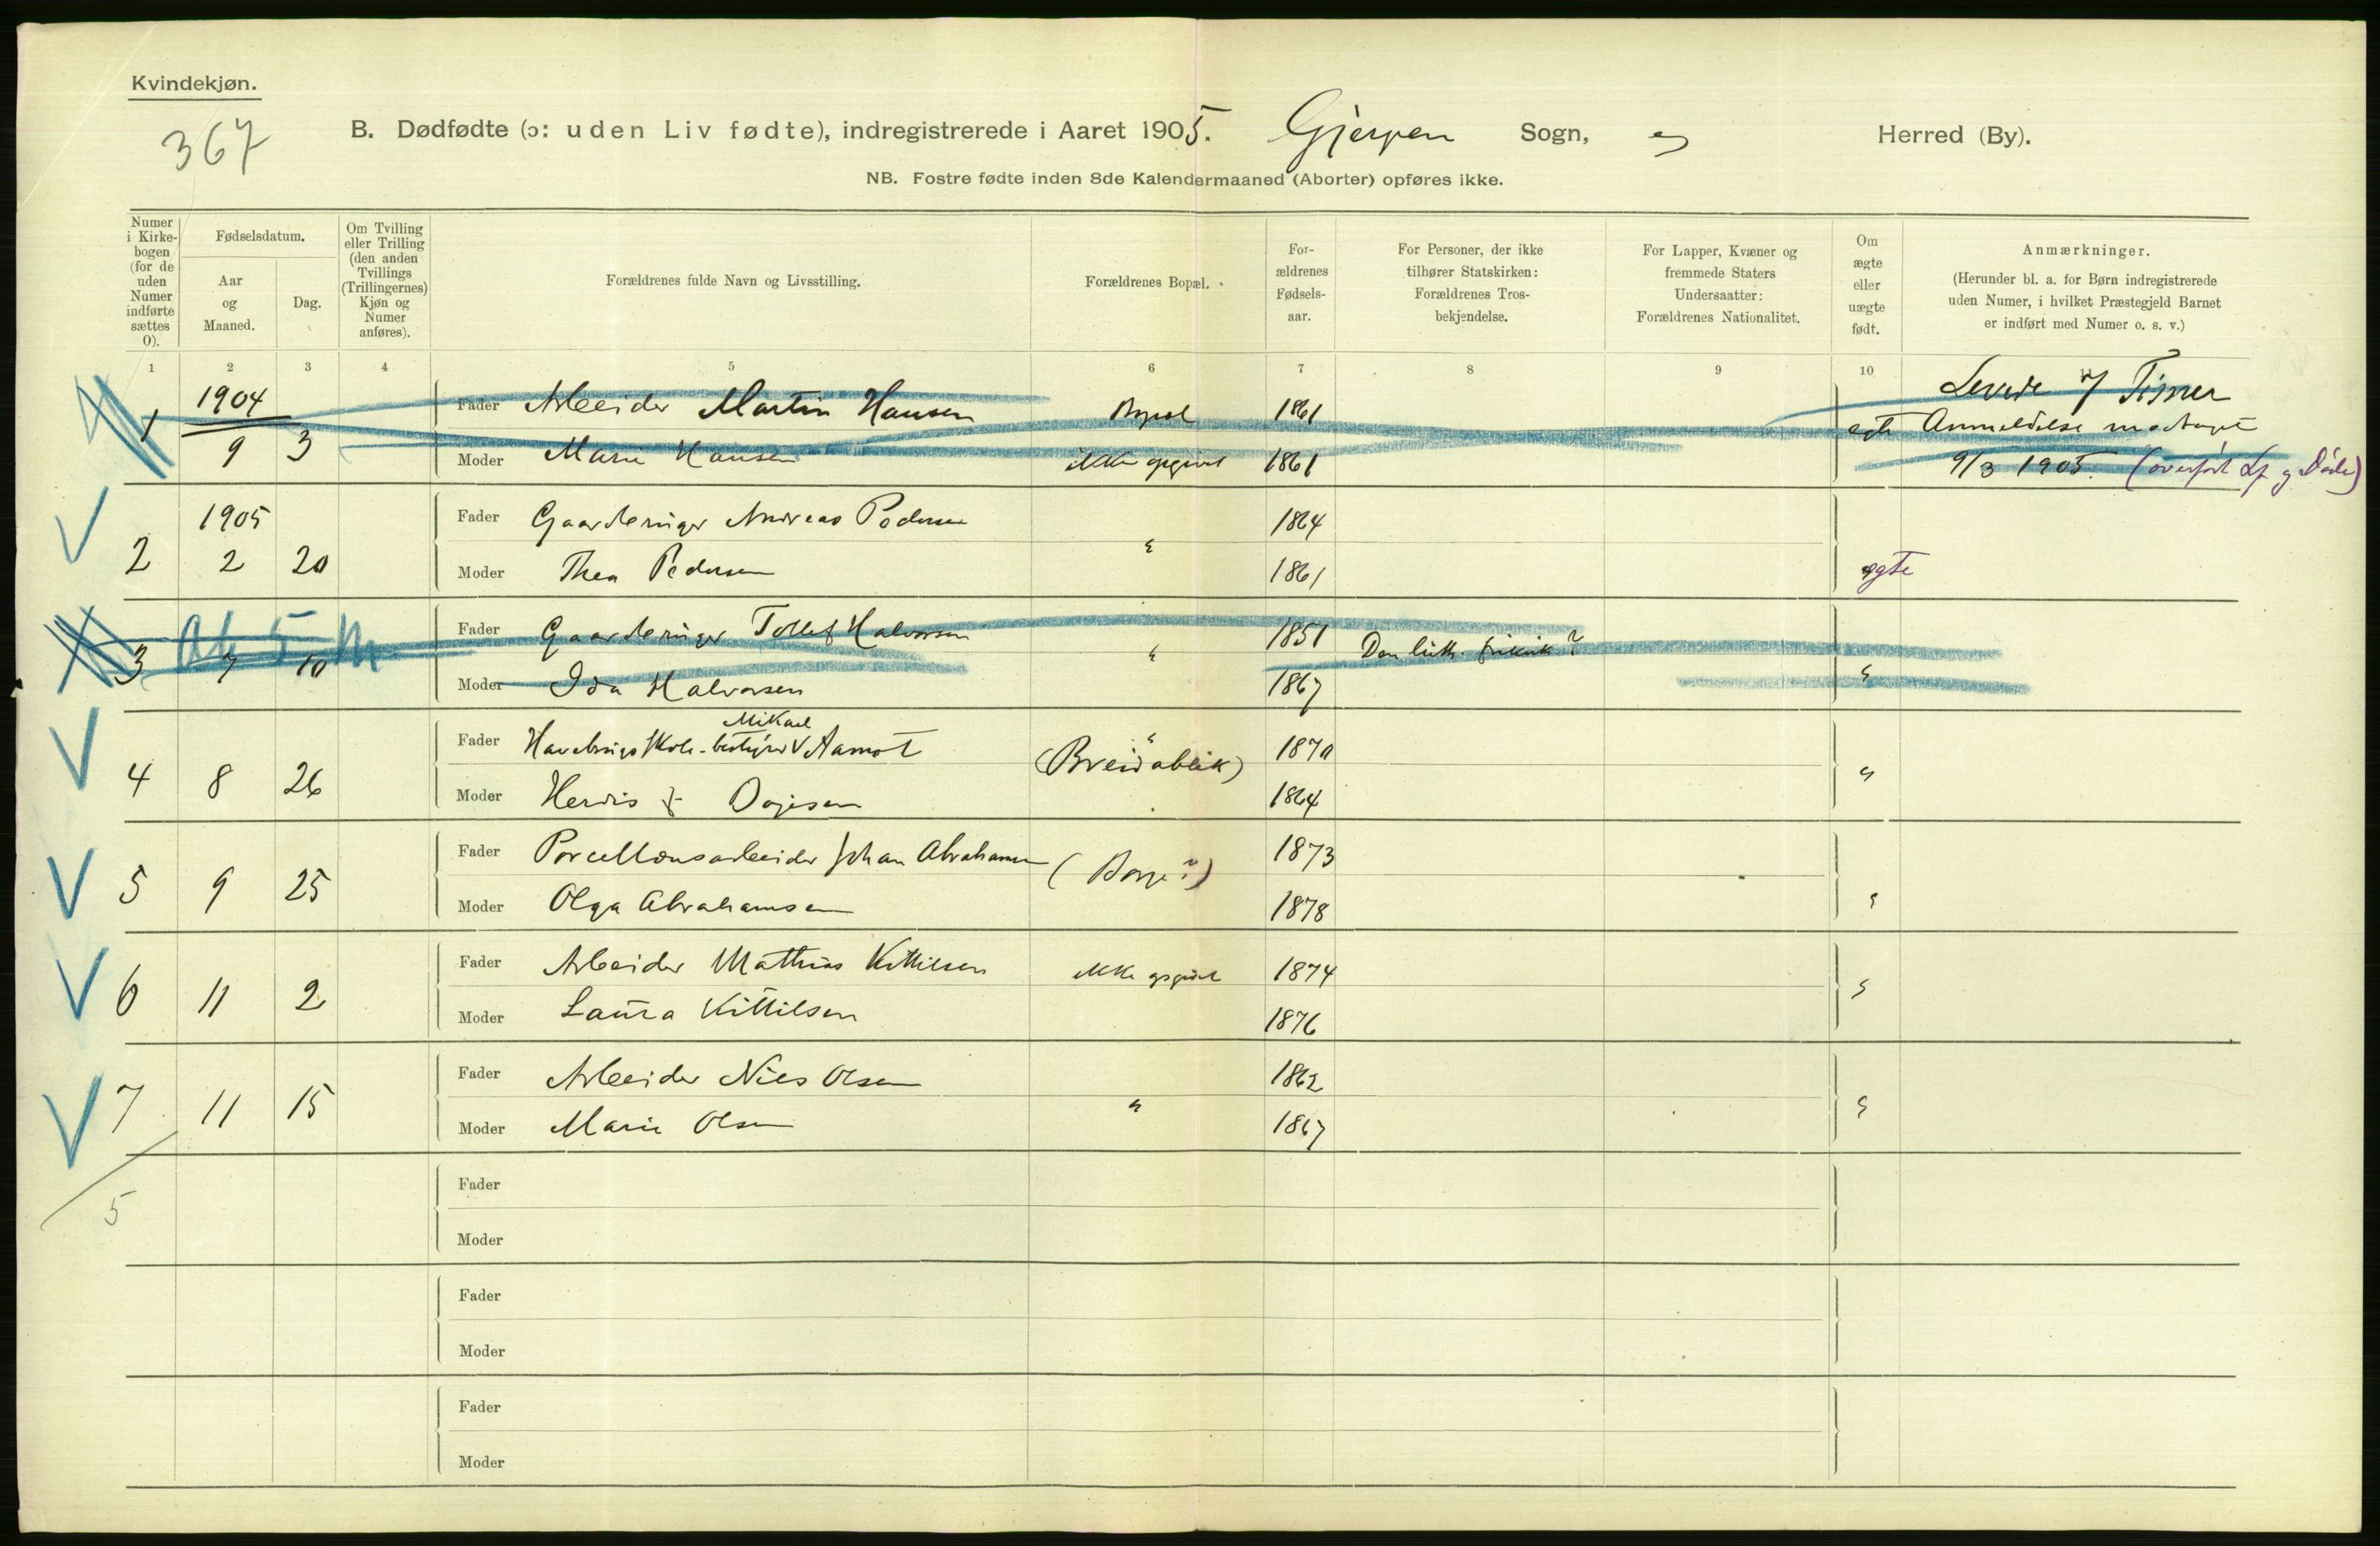 Kvindekjøn.
367
B. Dødfødte (ɔ: uden Liv fødte), indregistrerede i Aaret 1905. Gjerpen Sogn, " Herred (By).
NB. Fostre fødte inden 8de Kalendermaaned (Aborter) opføres ikke.
Numer i Kirkebogen (for de uden Numer indførte sættes 0).
Fødselsdatum.
Aar og Maaned.
Dag.
Om Tvilling eller Trilling (den anden Tvillings (Trillingernes) Kjøn og Numer anføres).
Forældrenes fulde Navn og Livsstilling.
Forældrenes Bopæl.
For-ældrenes Fødsels-aar.
For Personer, der ikke tilhører Statskirken: Forældrenes Tros-bekjendelse.
For Lapper, Kvæner og fremmede Staters Undersaatter: Forældrenes Nationalitet.
Om ægte eller uægte født.
Anmærkninger.
(Herunder bl. a. for Børn indregistrerede uden Numer, i hvilket Præstegjeld Barnet er indført med Numer o. s. v.)
1 2 3 4 5 6 7 8 9 10
1904
1 9 3 Fader Arbeider Martin Hansen Bopæl 1861 Levede 7 Timer
Moder Marie Hansen ikke opgivet 1861 egte Anmeldelse modtaget
9/3 1905. (overført Lf og Døde)
1905
2 2 20 Fader Gaardbruger Andreas Pedersen " 1864
Moder Thea Pedersen 1861 egte
3 7 10 Fader Gaardbruger Tollef Halvorsen " 1851 Den luth. frikirk?
Moder Ida Halvorsen 1867 "
Mikael
4 8 26 Fader Havebrugsskole-bestyrer V Aamot " (Breidablik) 1870
Moder Herdis f. 1864 "
5 9 25 Fader Porcellænsarbeider Johan Abrahamsen (Borge?) 1873
Moder Olga Abrahamsen 1878 "
6 11 2 Fader Arbeider Mathias Kittilsen ikke opgivet 1874
Moder Laura Kittilsen 1876 "
7 11 15 Fader Arbeider Nils Olsen " 1862
Moder Marie Olsen 1867 "
5
Fader
Moder
Fader
Moder
Fader
Moder